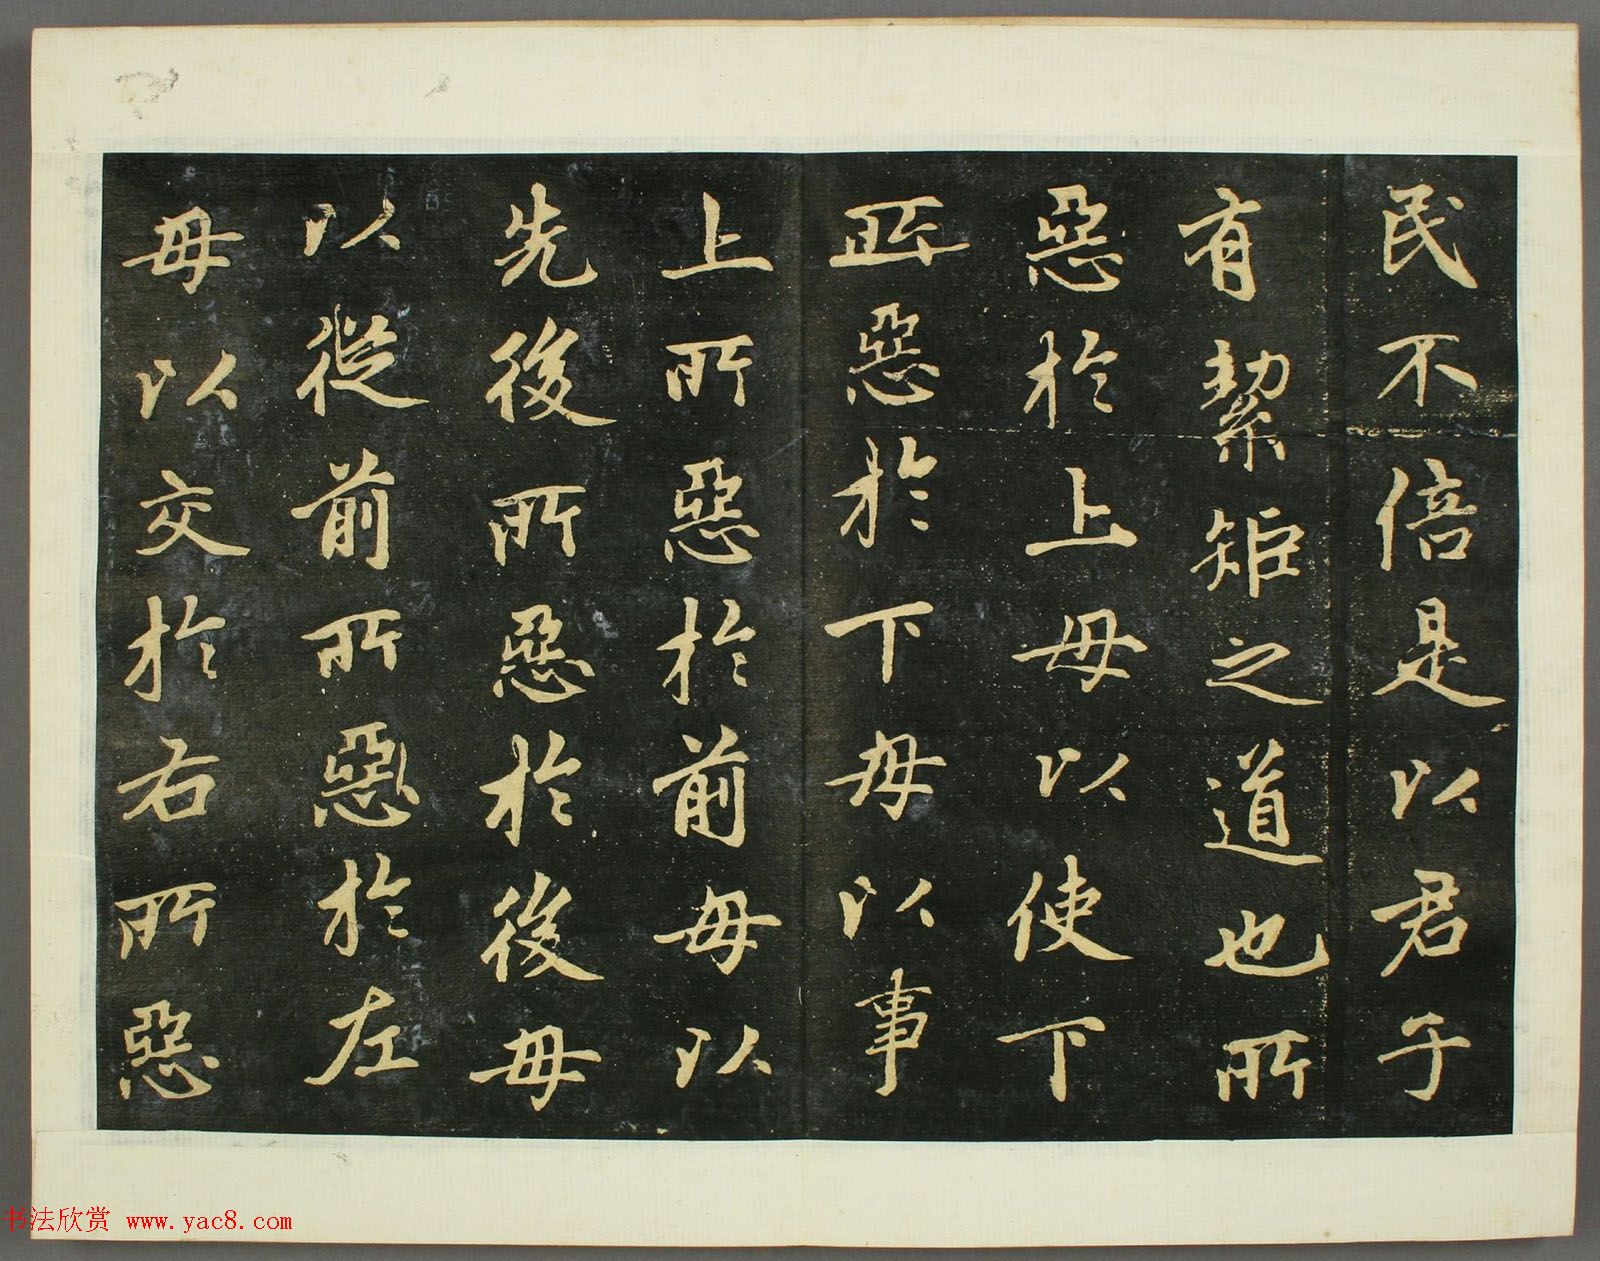 民不倍是以君子
有絜矩之道也所
惡於上毋以使下
所惡於下毋以事
上所惡於前毋以
先後所惡於後毋
以從前所惡於左
毋以交於右所惡
书法欣赏 www.yac8.com